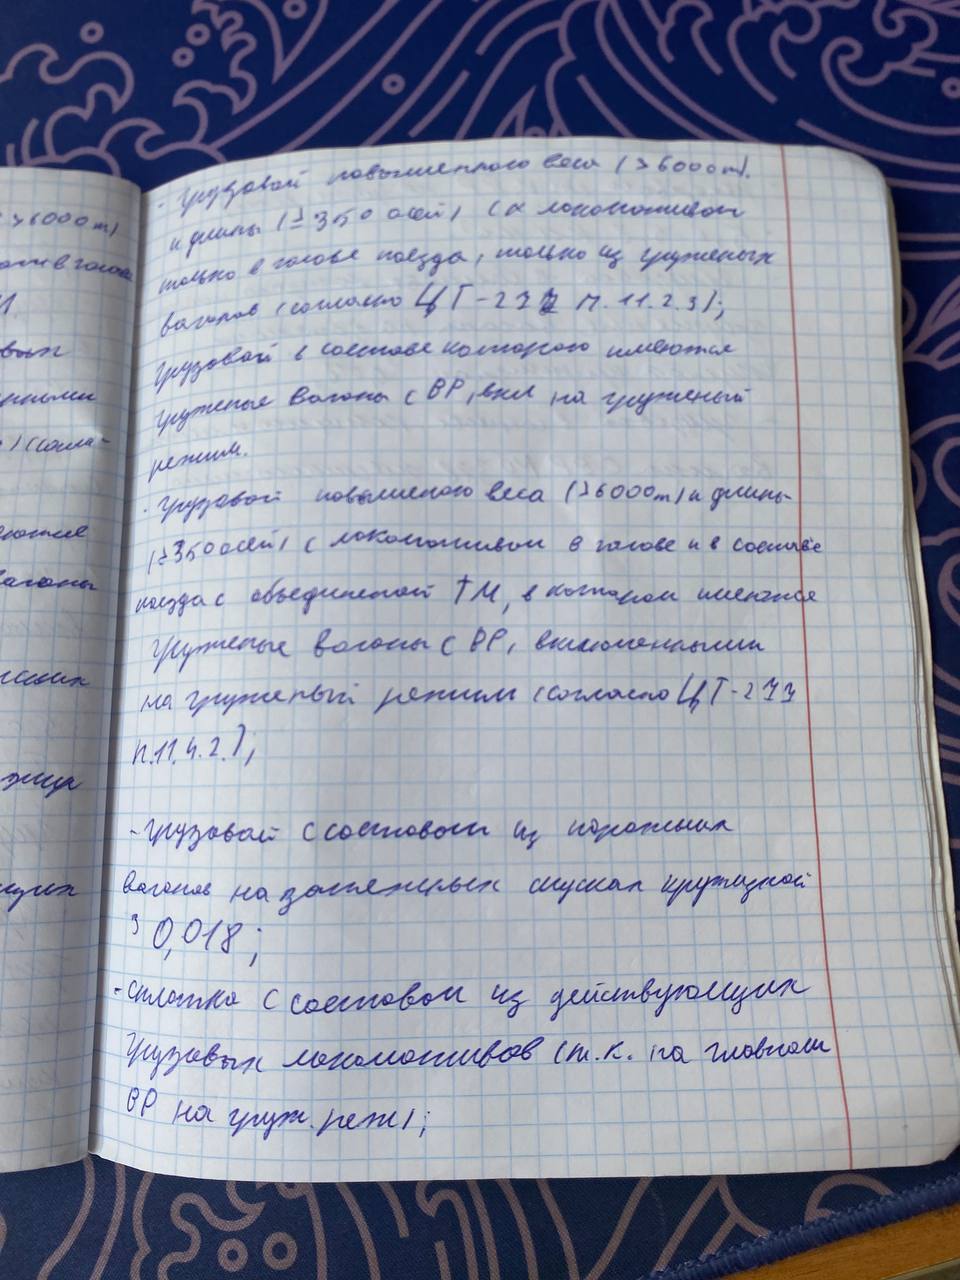 > 6000 т)
- грузовой повышенного веса (> 6000 т).
и длины (≥ 350 осей) с локомотивом
только в голове поезда, только из груженых
вагонов (согласно ЦТ-277 п. 11.2.3);
грузовой в составе которого имеются
груженые вагоны с ВР, вкл на груженый
режим.
- грузовой повышеного веса (>6000т) и длины
(≥350 осей) с локомотивом в голове и в составе
поезда с объединеной ТМ, в котором имеются
груженые вагоны с ВР, включенными
на груженый режим (согласно ЦТ-277
п.11.4.2.);
- грузовой с составом из порожних
вагонов на затяжных спусках крутизной
≥ 0,018;
- сплотка с составом из действующих
грузовых локомотивов (т.к. на главном
ВР на груж. реж);